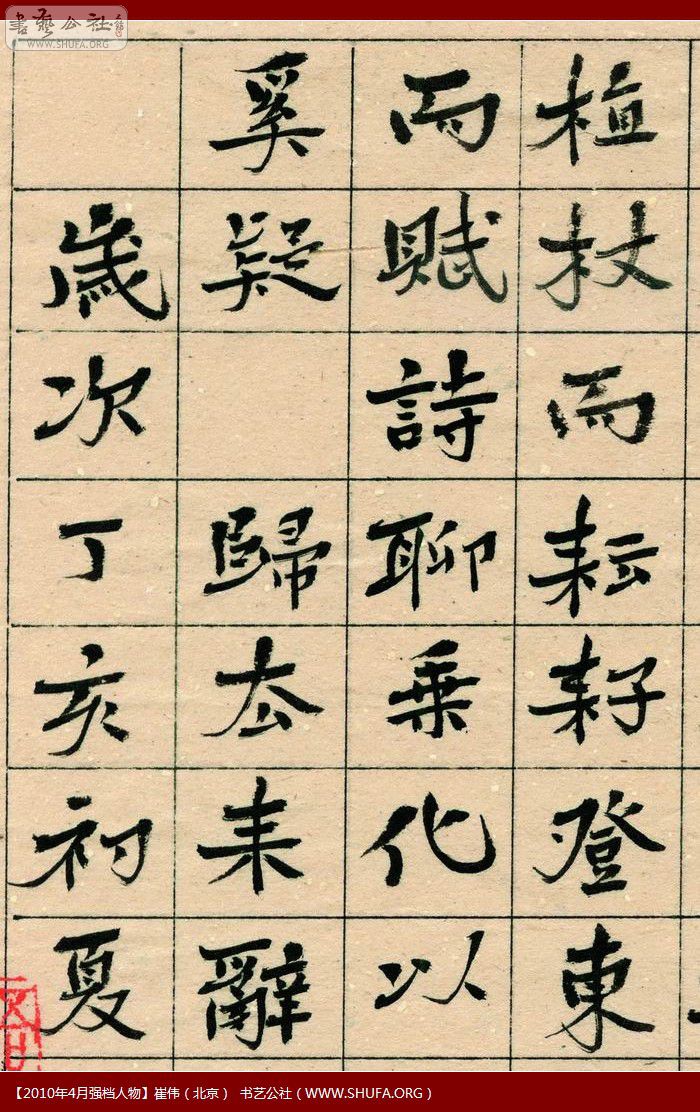 書藝公社
WWW.SHUFA.ORG
植杖而耘耔登東
而賦詩聊乗化以
奚疑 歸去来辭
歲次丁亥初夏
【2010年4月强档人物】崔伟（北京） 书艺公社（WWW.SHUFA.ORG）